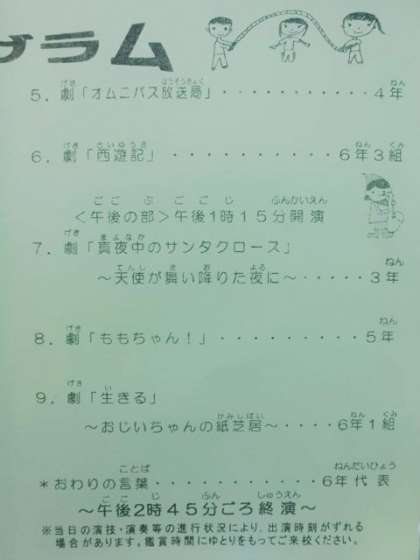 グラム
5. 劇「オムニバス放送局」・・・・・・・・・・4年
6. 劇「西遊記」・・・・・・・・・・6年3組
<午後の部>午後1時15分開演
7. 劇「真夜中のサンタクロース」
～天使が舞い降りた夜に～・・・・・3年
8. 劇「ももちゃん！」・・・・・・・・5年
9. 劇「生きる」
～おじいちゃんの紙芝居～・・・・6年1組
*おわりの言葉・・・・・・・・・・6年代表
～午後2時45分ごろ終演～
※当日の演技・演奏等の進行状況により、出演時刻がずれる
場合があります。鑑賞時間にゆとりをもってご来校ください。